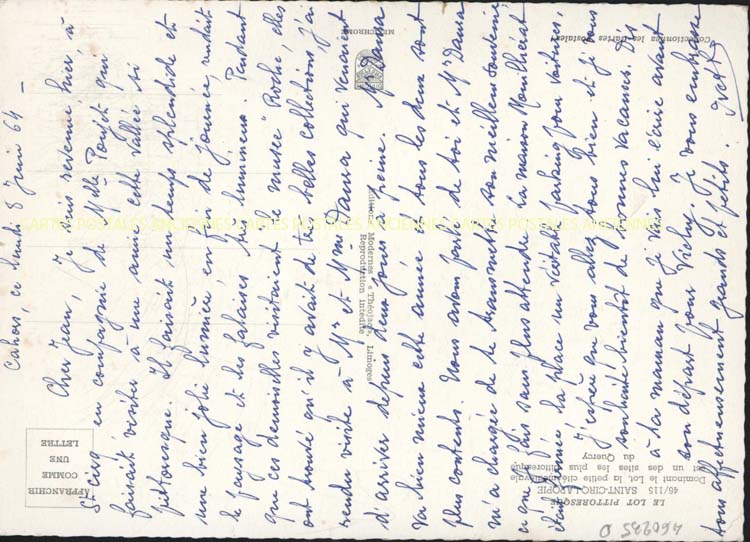 Cahors, ce lundi 8 Juin 64 —
Cher Jean, Je suis revenue hier à
St Cirq en compagnie de Melle Poujet qui
faisait visiter à une amie cette vallée si
pittoresque. Il faisait un temps splendide et
une bien jolie lumière en fin de journée, rendait
le paysage et les falaises plus lumineux. Pendant
que ces demoiselles visitaient le musée "Roche", elles
ont trouvé qu'il y avait de très belles collections, j'ai
rendu visite à Mr et Mme Daura qui venaient
d'arriver depuis deux jours à peine. Mr Daura
va bien mieux cette année et tous les deux sont
plus contents. Nous avons parlé de toi et Mr Daura
m'a chargée de te transmettre son meilleur souvenir,
ce que je fais sans plus attendre. La maison
la place un véritable parking pour voitures.
J'espère que vous allez tous bien et je vous
souhaite bientôt de bonnes vacances. Dis
à ta maman que je vais lui écrire avant
son départ pour Vichy. Je vous embrasse
tous affectueusement grands et petits.
AFFRANCHIR
COMME
UNE
LETTRE
LE LOT PITTORESQUE
46/115 SAINT-CIRQ-LAPOPIE
Dominant le Lot, la petite cité médiévale
est un des sites les plus pittoresques
du Quercy
Editions Modernes « Théojac », Limoges
Reproduction interdite
MEXICHROME
Collectionnez les Cartes Postales
CARTES POSTALES ANCIENNES CARTES POSTALES ANCIENNES CARTES POSTALES ANCIENNES